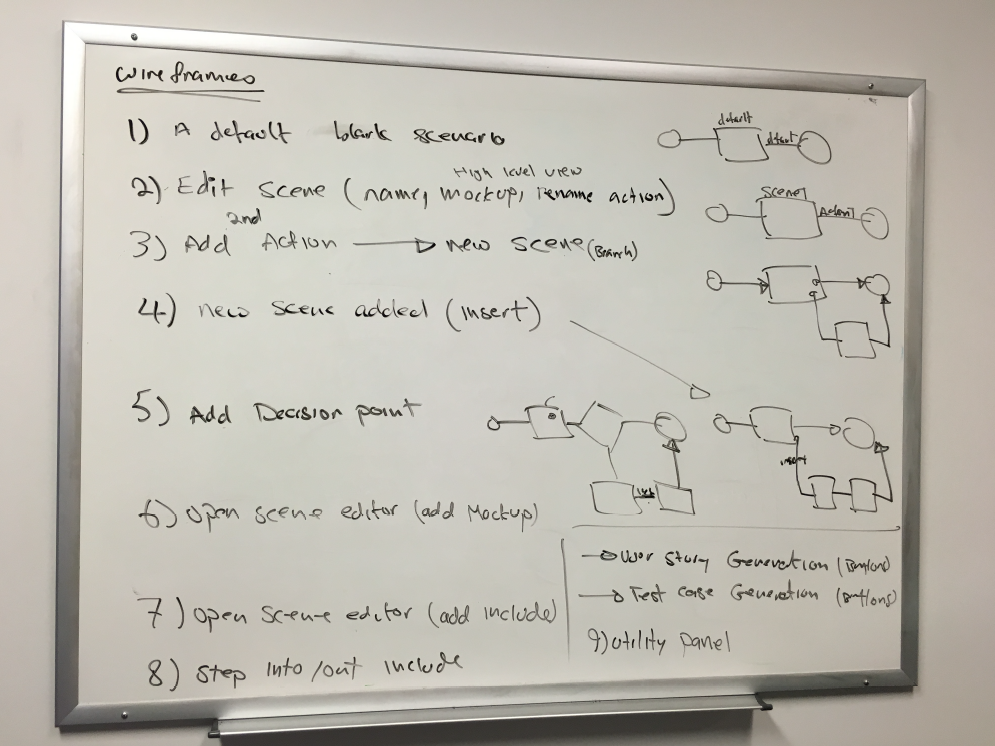 wireframes
1) A default blank scenario
default
dfault
High level view
2) Edit Scene (name, mockup, Rename action)
Scene1
Action1
2nd
3) Add Action → new scene (Branch)
4) new scene added (insert)
5) Add Decision point
insert
6) Open scene editor (add Mockup)
→ User Story Generation (Buttons)
→ Test case Generation (Buttons)
7) Open Scene editor (add include)
9) utility panel
8) Step into/out include